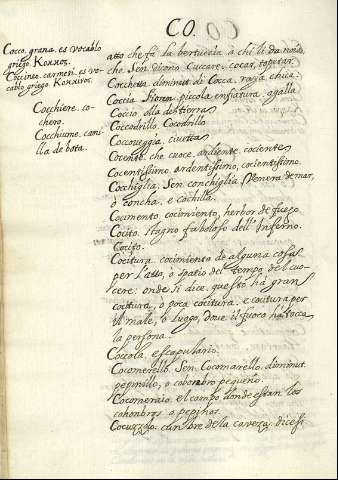 CO.
Cocco. grana. es vocablo
griego Κοκκος.
Coccineo. carmesi. es vo-
cablo griego. Κοκκινος.
Cocchiere. co-
chero.
Cocchiume. cani-
lla de bota.
atto che fà la bertuccia à chi li da noia,
che Sen. dicono Cuccare. cocar,
Cocchetta diminut. de Cocca. raja chica.
Coccia Fioren. piccola enfiatura. agalla
Coccio olla de tierra
Coccodrillo. Cocodrillo
Coccoveggia. civetta
Cocente. che cuoce. ardiente. cociente
Cocentissimo. ardentissimo. cocientissimo.
Cocchiglia. Sen. conchiglia Venera de mar,
ò concha. e cochilla.
Cocimento. cocimiento, herbor de fuego
Cocito. stagno faboloso dell'Inferno.
Cocito.
Cocitura. cocimiento de alguna cosa,
per l'atto, ò spatio del tempo del cuo-
cere: onde si dice. questo ha gran
cocitura, ò poca cocitura. e coctura per
il male, ò luogo, dove il fuoco ha tocca
la persona.
Cocola. escapulario.
Cocomerello. Sen. Cocomarello. diminut.
pepinillo, o cohombro pequeño.
Cocomeraio. el campo donde estan los
cohombros o pepinos.
Cocuzzolo. cumbre de la caveza. dicesi